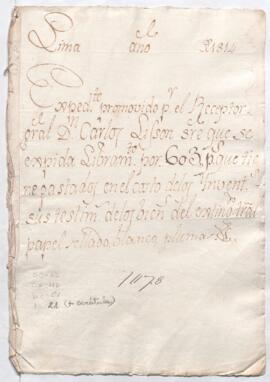 Lima año de 1814
Expedte promovido pr el Receptor
gral Dn Carlos Lison sre que se
expida Libramto por 603 ps que tie
ne gastados en el costo de los Invent
s sus testim de los bien del extingdo
papel sellado, blanco, plumas
1178
21 (+ carátula)